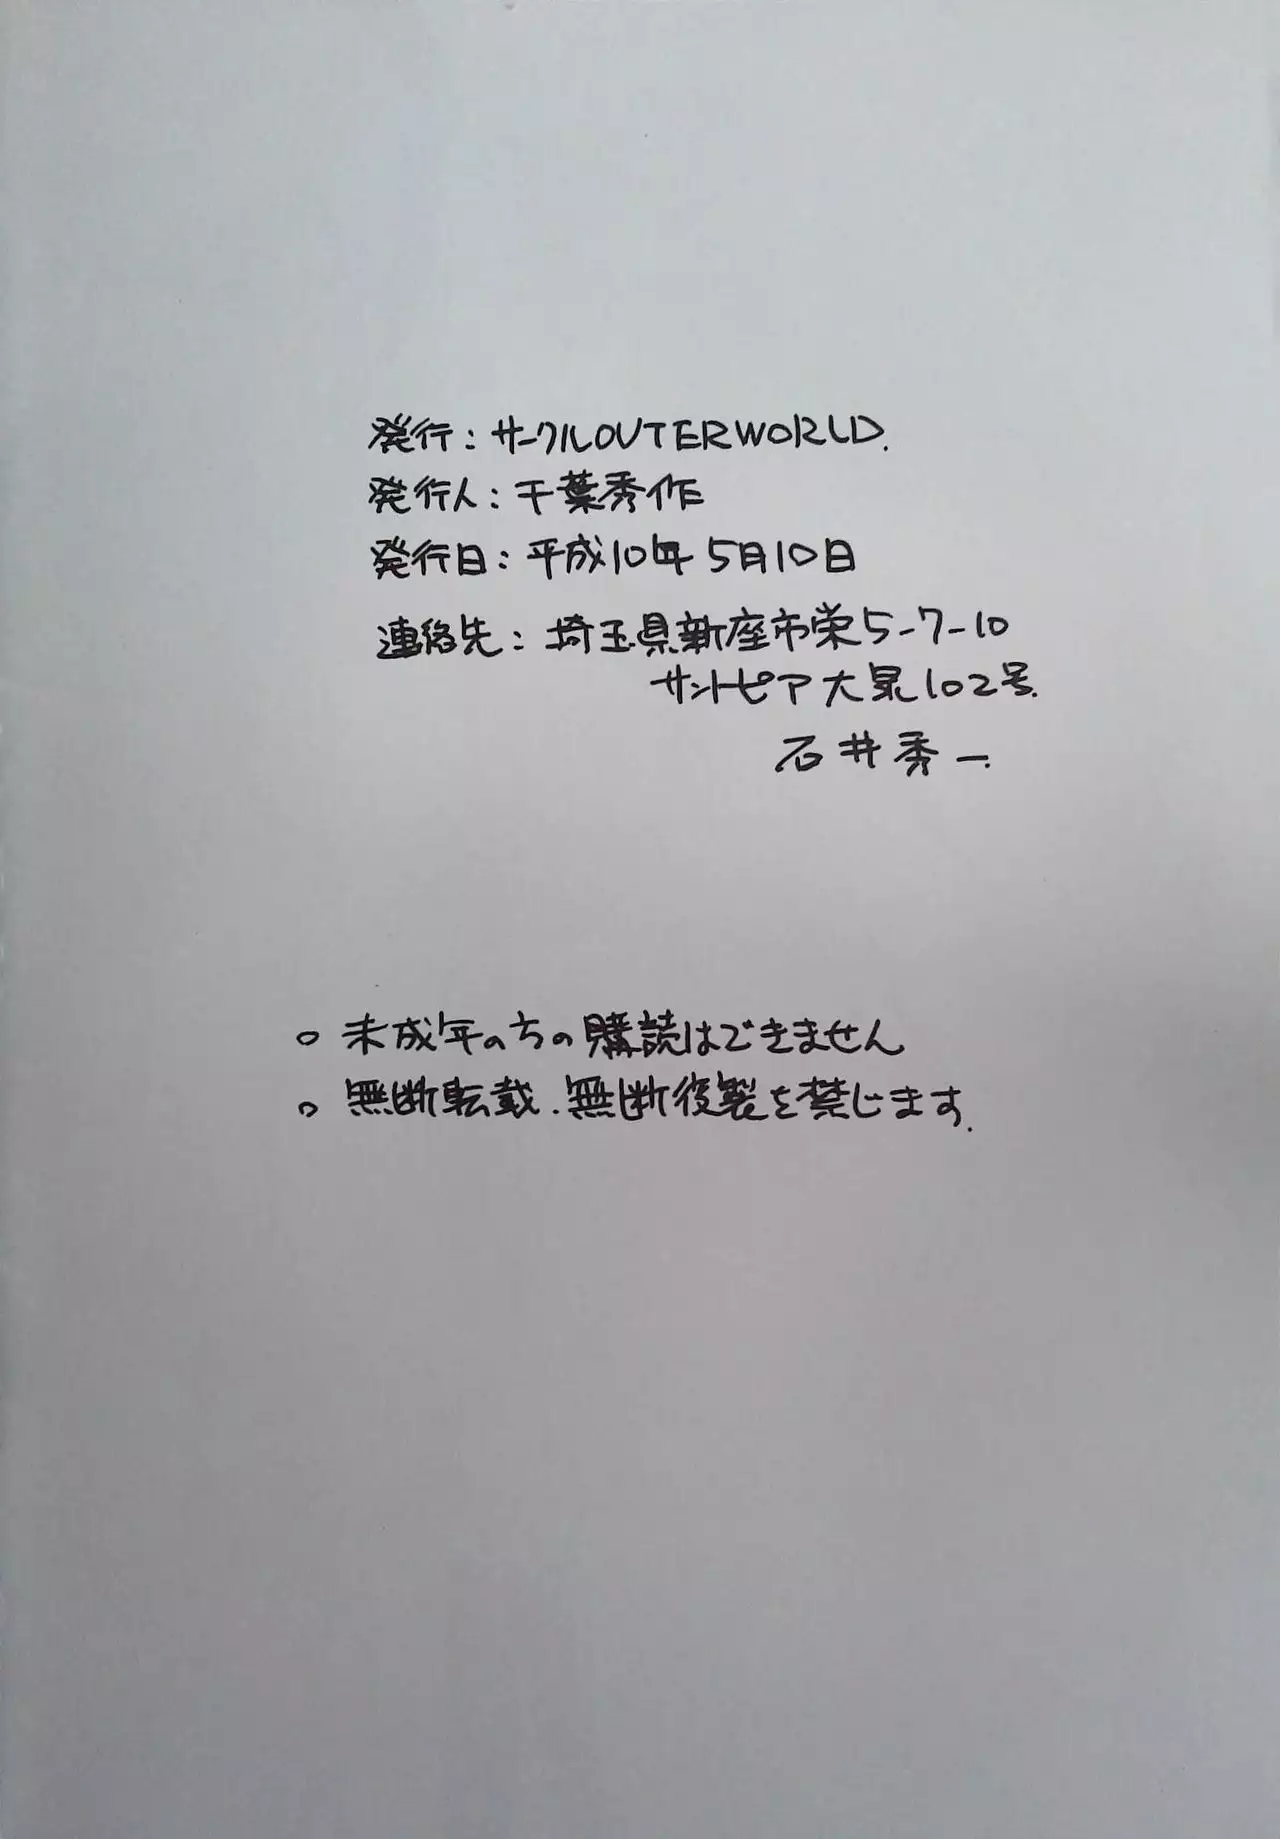 発行：サークルOUTERWORLD.
発行人：千葉秀作
発行日：平成10年5月10日
連絡先：埼玉県新座市栄5-7-10
サントピア大泉102号.
石井秀一.
○ 未成年の方の購読はできません
○ 無断転載.無断複製を禁じます.